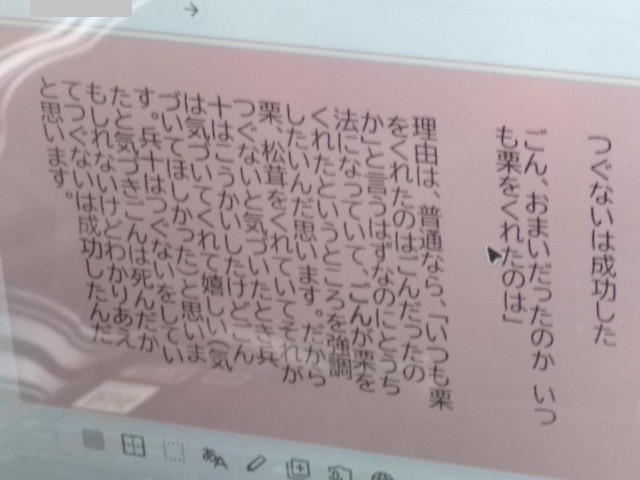 つぐないは成功した
ごん、おまいだったのか いっ
も栗をくれたのは」
理由は、普通なら、「いつも栗
をくれたのはごんだったの
か」と言うはずなのにとうち
法になっていて、ごんが栗を
くれたというところを強調
したいんだ思います。だから
栗、松茸をくれていてそれが
つぐないと気づいたとき兵
十はこうかいしたけどごん
は気づいてくれて嬉しい(気
づいてほしかった)と思いま
す。兵十はつぐないをしてい
たと気づきごんは死んだか
もしれないけどわかりあえ
てつぐないは成功したんだ
と思います。
あA